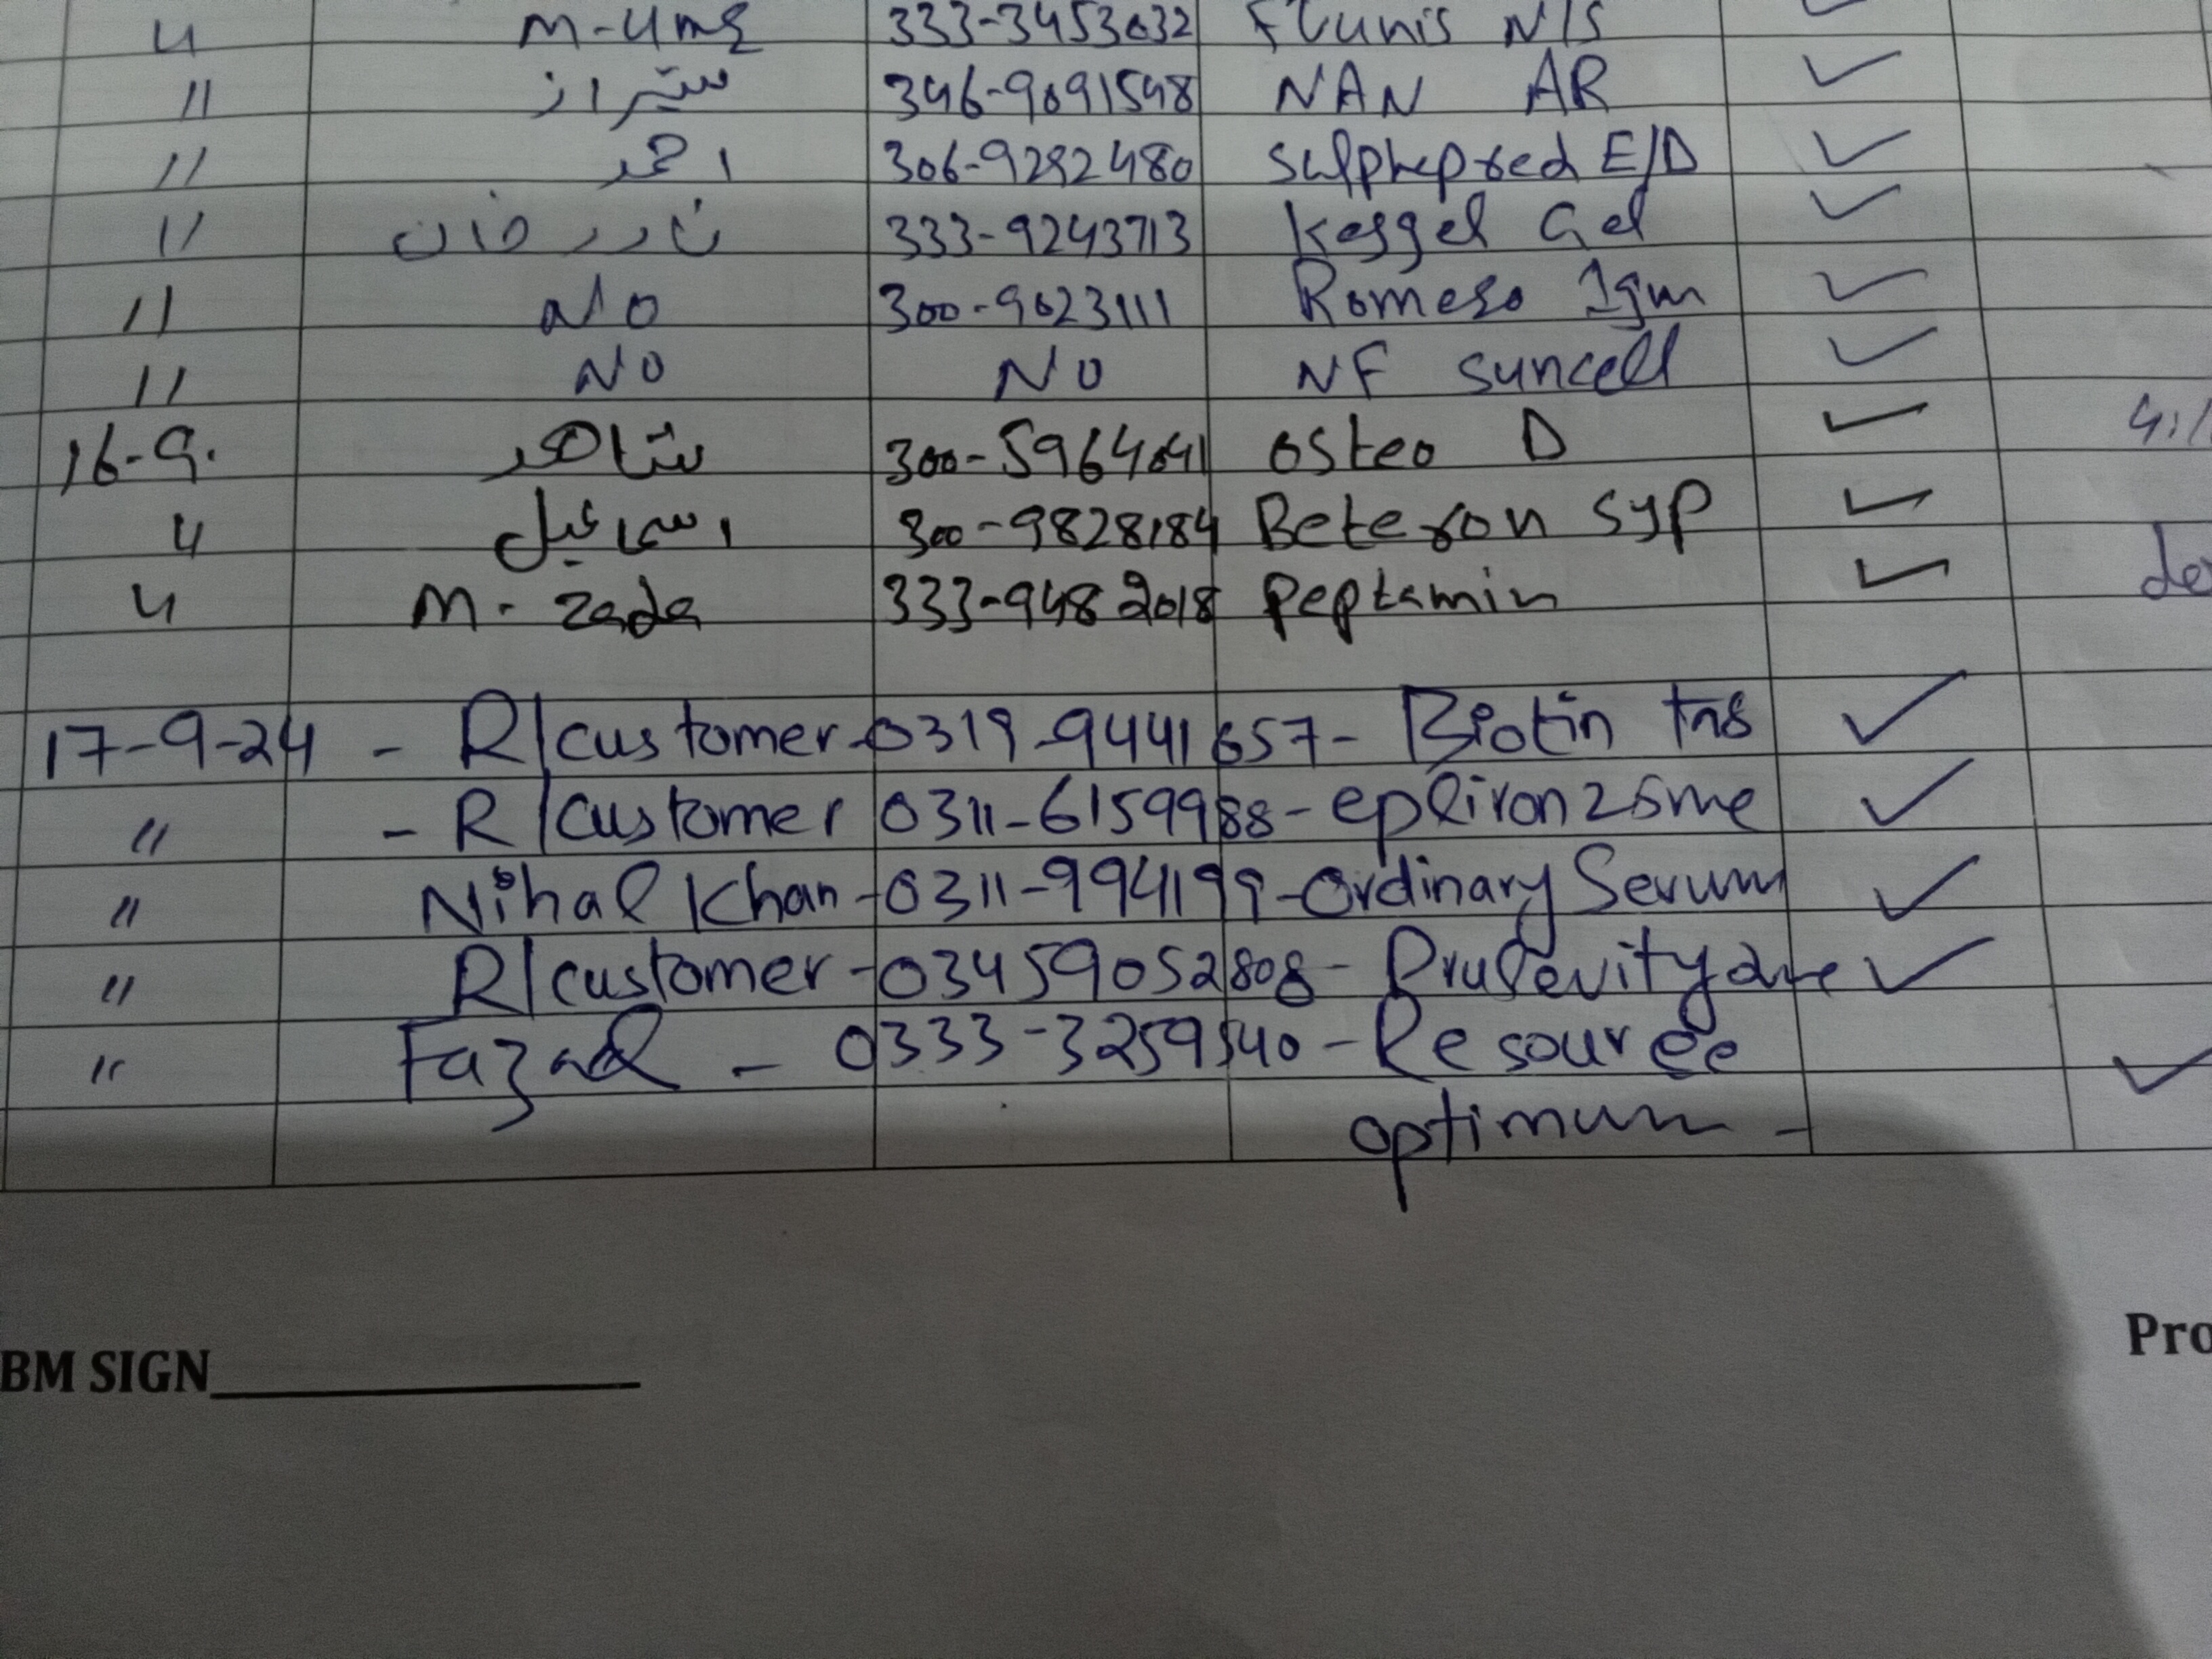 〃 M-Umar 333-3453032 Flunis N/S
〃 شیراز 346-9091548 NAN AR
〃 احمد 306-9292480 Sulphepred E/D
〃 نادر خان 333-9243713 Kesgel Gel
〃 No 300-9023111 Romeso 1gm
〃 No No NF suncell
16-9. شاھد 300-5964041 Osteo D
〃 اسماعیل 300-9828184 Beteron syp
〃 M. Zada 333-9482018 Peptamin
17-9-24 - R/customer-0319-9441657- Biotin
〃 - R/customer 0311-6159988-epliron 25mg
〃 Nihal Khan-0311-994199-Ordinary Serum
〃 R/customer-03459052808-
〃 Fazal - 0333-3259540-Resource
optimum -
BM SIGN
Pro